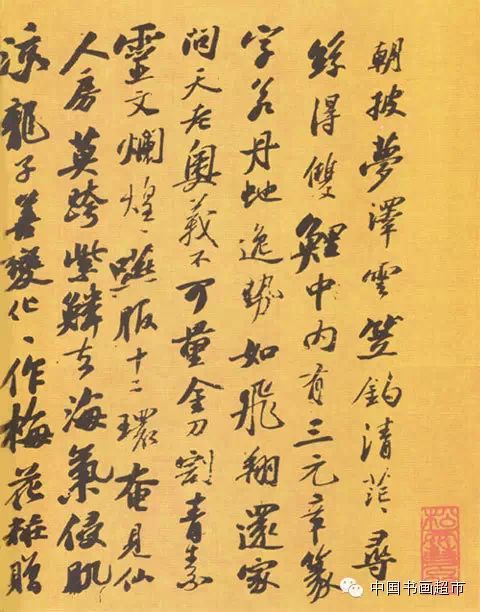 朝披夢澤雲笠釣清茫〻尋
絲得雙鯉中內有三元章篆
字若丹虵逸勢如飛翔還家
問天老奧義不可量金刀割青素
靈文爛煌〻嚥服十二環奄見仙
人房莫跨紫鱗去海氣侵肌
涼龍子善變化〻作梅花粧贈
中国书画超市